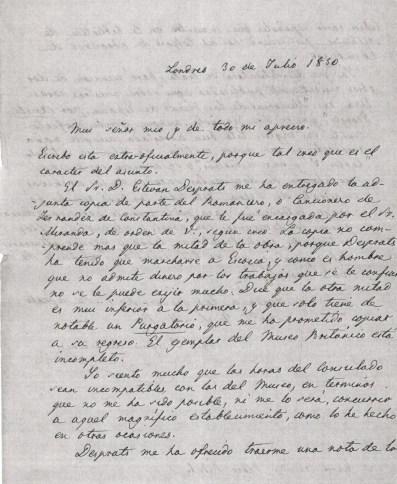 Londres 30 de Julio 1850
Mui señor mio y de todo mi aprecio.
Escribo esta extra-oficialmente, porque tal creo que es el
caracter del asunto.
El Sr. D. Estevan Desprats me ha entregado la ad-
junta copia de parte del Romancero, o Cancionero de
Fernandez de Constantina, que le fué encargada por el Sr.
Miranda, de orden de V., segun creo. La copia no com-
prende mas que la mitad de la obra, porque Desprats
ha tenido que marcharse a Escocia, y como es hombre
que no admite dinero por los trabajos que se le confian
no se le puede exijir mucho. Dice que la otra mitad
es mui inferior a la primera, y que solo tiene de
notable un Purgatorio, que me ha prometido copiar
a su regreso. El ejemplar del Museo Británico está
incompleto.
Yo siento mucho que las horas del consulado
sean incompatibles con las del Museo, en terminos
que no me ha sido posible, ni me lo será, concurrir
a aquel magnífico establecimiento, como lo he hecho
en otras ocasiones.
Desprats me ha ofrecido traerme una nota de lo